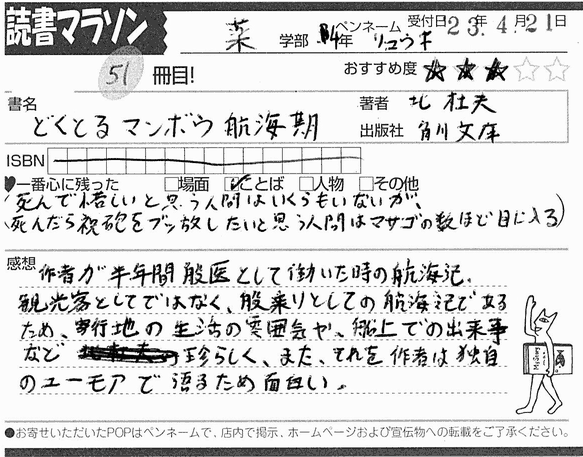 読書マラソン
薬 学部 4年 ペンネーム リュウキ 受付日 23年 4月21日
51 冊目! おすすめ度 ★★★☆☆
書名 著者 北 杜夫
どくとるマンボウ航海期 出版社 角川文庫
ISBN
♥一番心に残った □場面 ☑ことば □人物 □その他
(死んで惜しいと思う人間はいくらもいないが、
死んだら祝砲をブッ放したいと思う人間はマサゴの数ほど目に入る)
感想 作者が半年間船医として働いた時の航海記。
観光客としてではなく、船乗りとしての航海記である
ため、寄行地の生活の雰囲気や、船上での出来事
など 珍らしく、また、それを作者は独自
のユーモアで語るため面白い。
●お寄せいただいたPOPはペンネームで、店内で掲示、ホームページおよび宣伝物への転載をご了承ください。